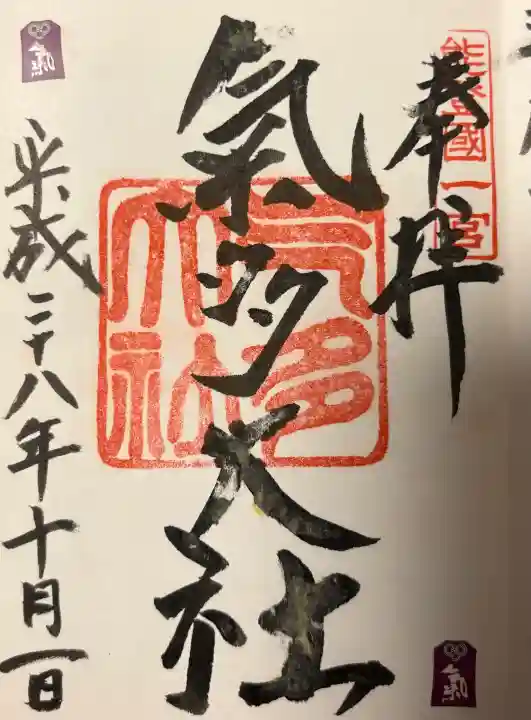 能登國一宮
奉拝
氣多大社
气多
大社
平成二十八年十月一日
氣
氣